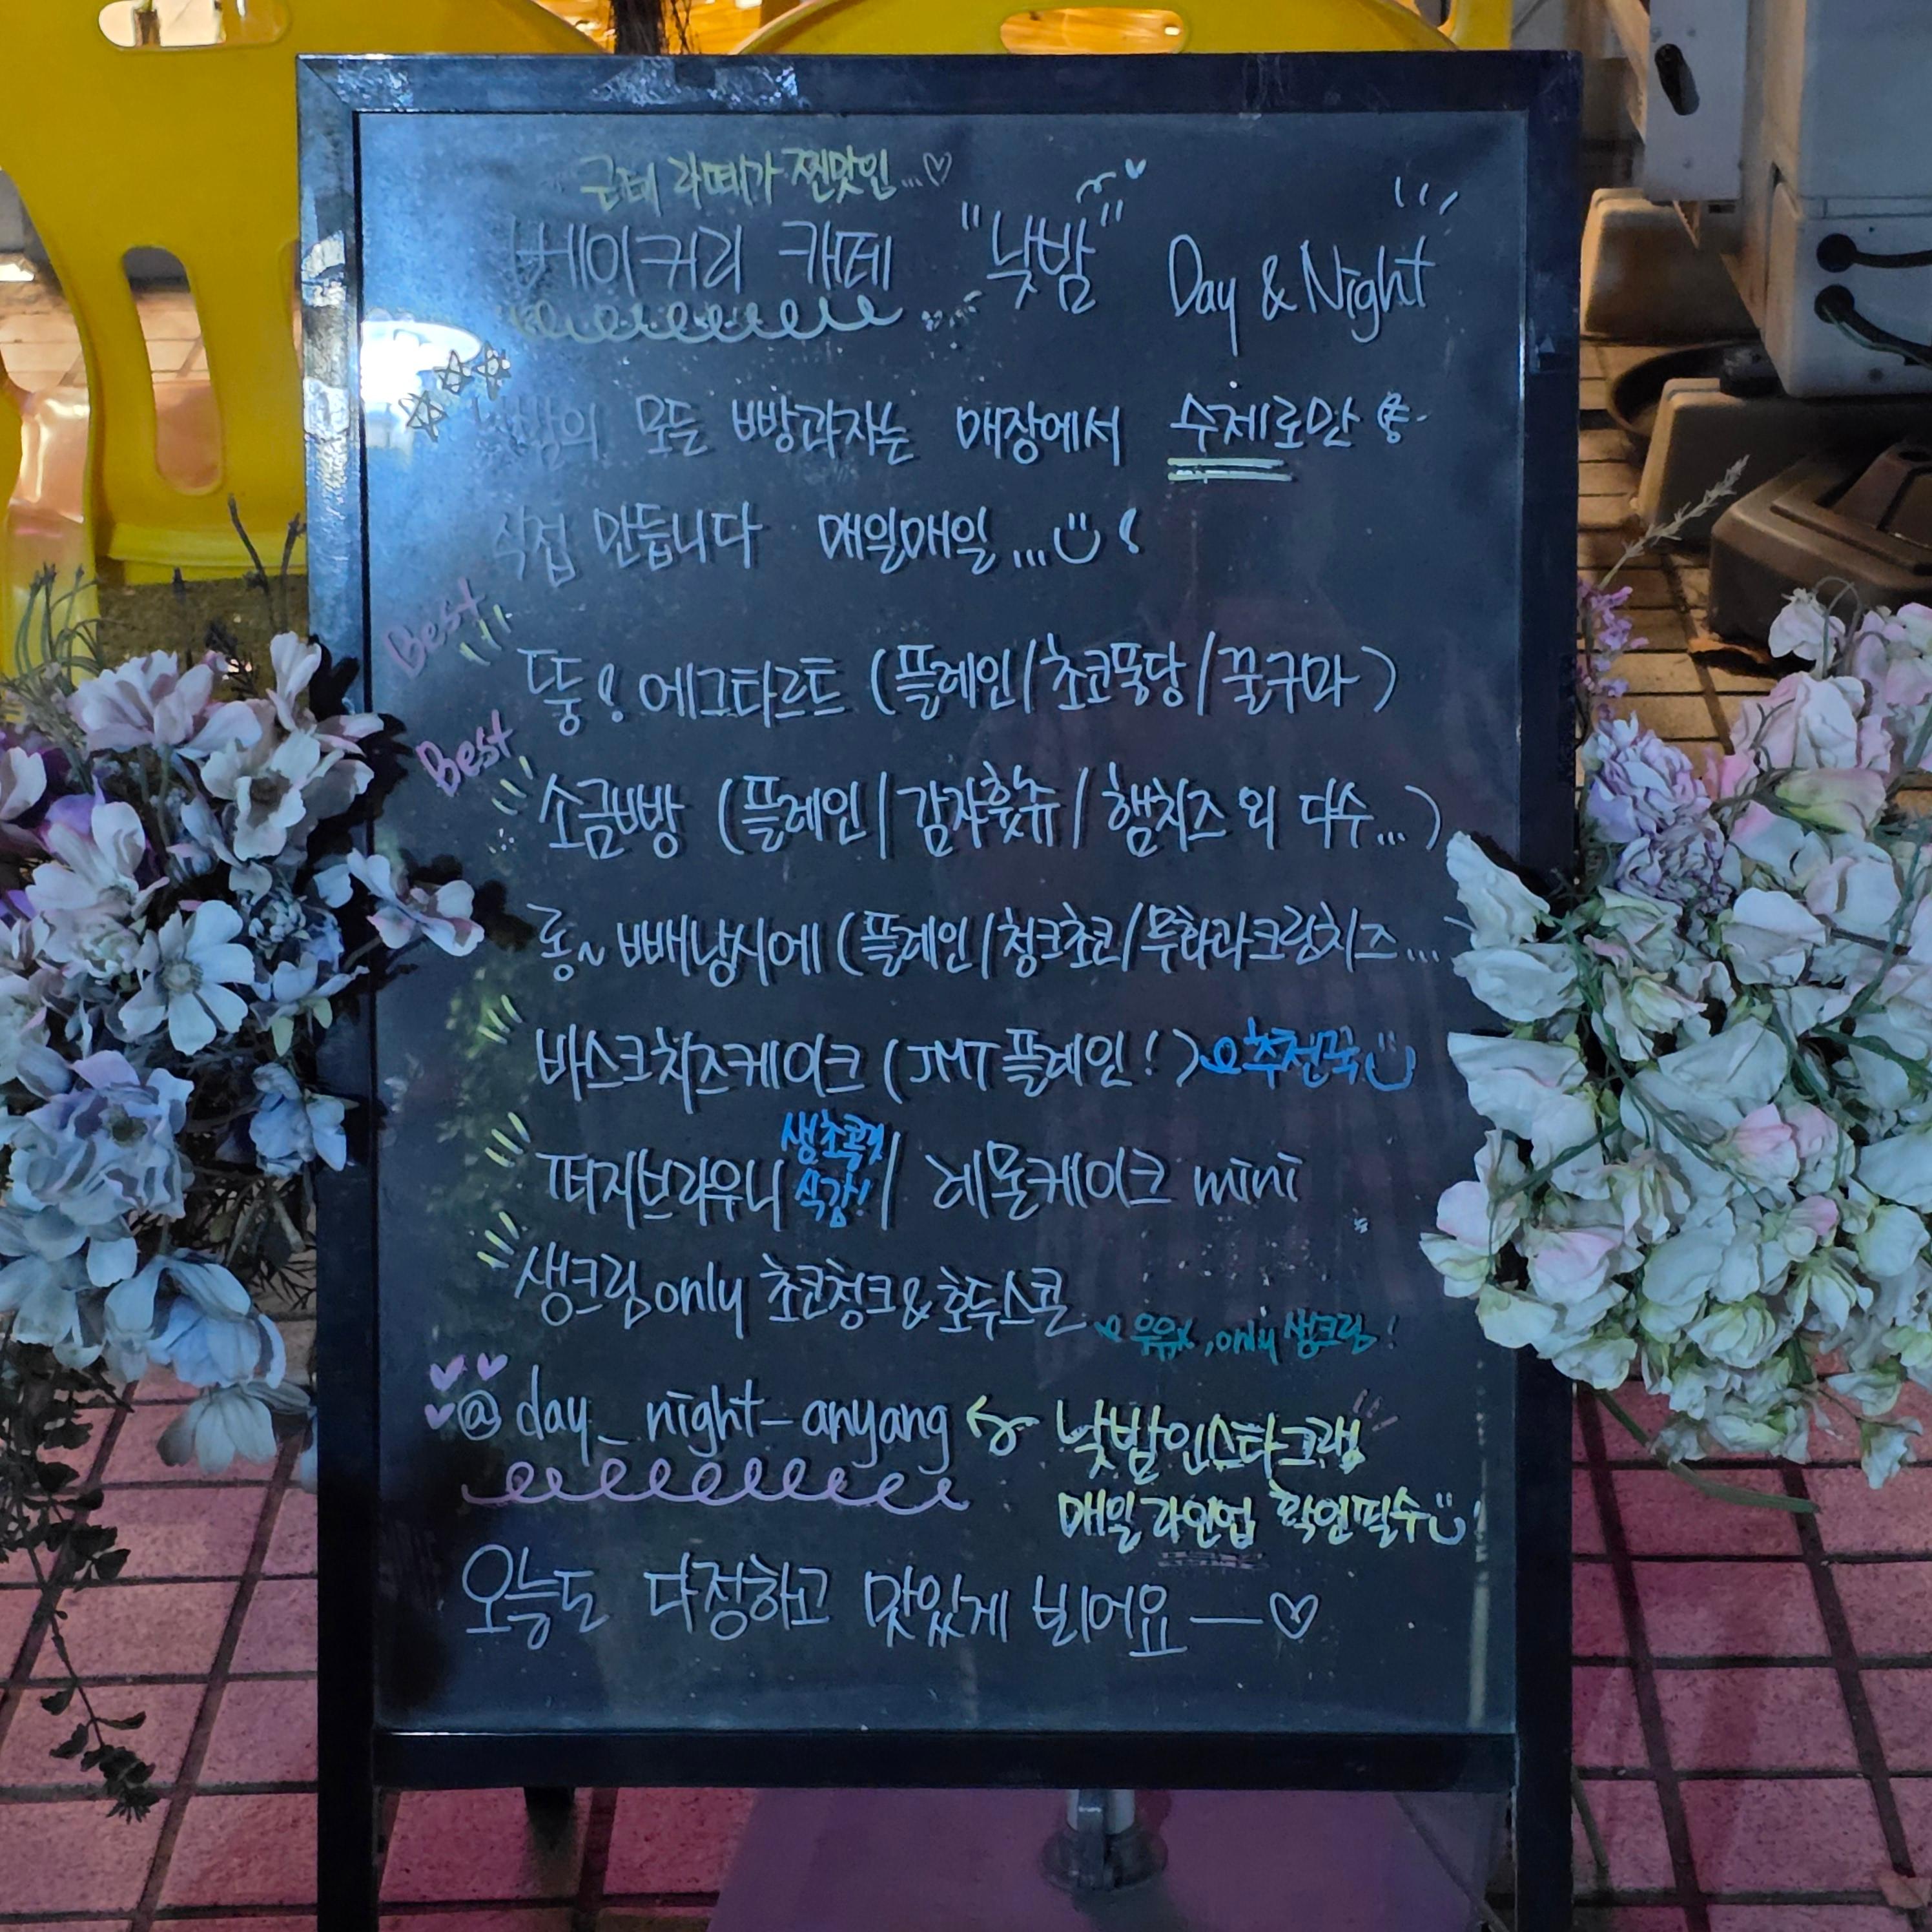 근데 라떼가 찐맛인...♡
베이커리 카페 "낮밤" Day & Night
낮밤의 모든 빵과자는 매장에서 수제로만
직접 만듭니다 매일매일...
Best
뚱! 에그타르트 (플레인/초코퐁당/꿀구마)
Best
소금빵 (플레인/감쟈홋츄/햄치즈 외 다수...)
롱~빼낭시에 (플레인/청크초코/무화과크림치즈...
바스크치즈케이크 (JMT 플레인!) 추천꾹
퍼지브라우니 생초콜릿 식감! / 레몬케이크 mini
생크림only 초코청크&호두스콘
우유x, only 생크림!
@day_night_anyang 낮밤인스타그램
매일 라인업 확인필수!
오늘도 다정하고 맛있게 뵈어요—♡